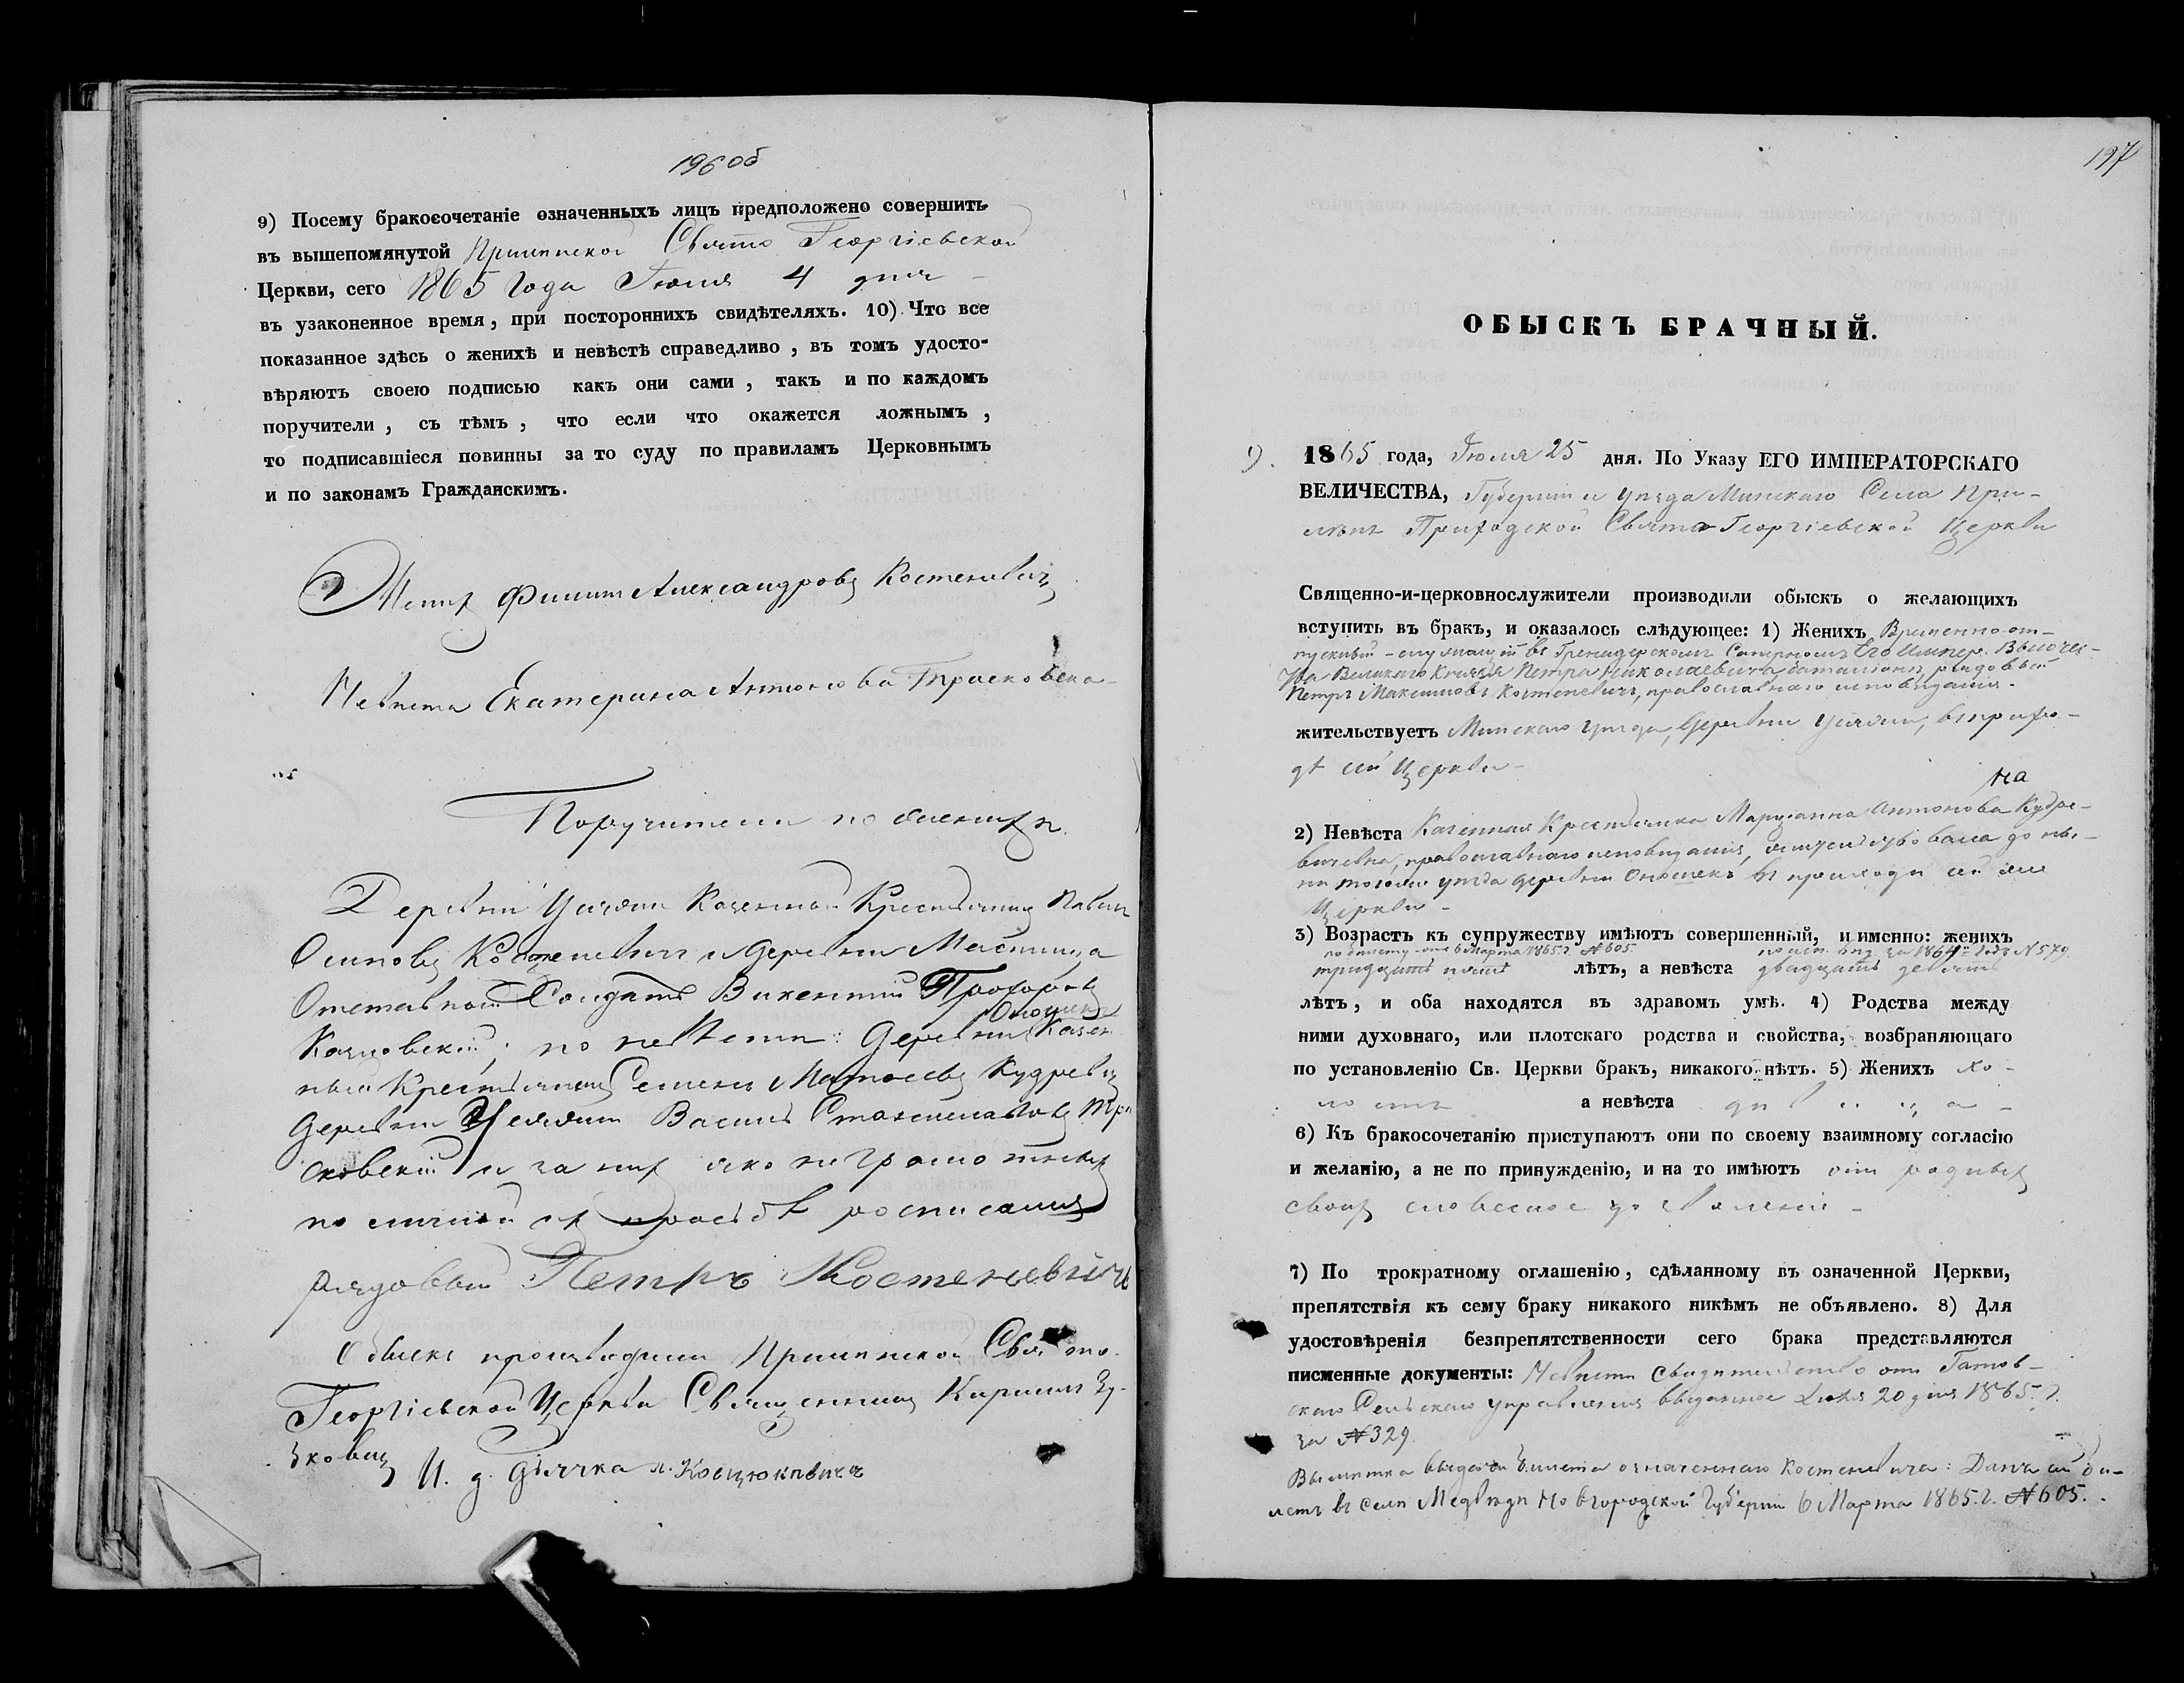 196 об
9) Посему бракосочетаніе означенныхъ лицъ предположено совершить
въ вышепомянутой Прилѣпской Свято Георгіевской
Церкви, сего 1865 года Іюля 4 дня
въ узаконенное время, при постороннихъ свидѣтеляхъ. 10) Что все
показанное здѣсь о женихѣ и невѣстѣ справедливо, въ томъ удосто-
вѣряютъ своею подписью какъ они сами, такъ и по каждомъ
поручители, съ тѣмъ, что если что окажется ложнымъ,
то подписавшіеся повинны за то суду по правиламъ Церковнымъ
и по законамъ Гражданскимъ.
Женихъ Филип Александровъ Костеневичъ
Невѣста Екатерина Антонова Трасковска
Поручители по женихѣ
Деревни Казенной Крестьянинъ
Осиповъ Костеневичъ и деревни
Отставной Солдатъ Викентій Прохоровъ
по невѣстѣ: деревни Казен
ный Крестьянинъ Семенъ Матѳеевъ Кудревич
деревни Василь Станиславовъ Тра
сковскій и за них яко неграмотныхъ
по личной их просьбѣ росписался
рядовый Петръ Костеневичъ
Обыскъ производили Прилѣпской Свято-
Георгіевской Церкви Священникъ Кирилъ
И. д. дьячка
197
ОБЫСКЪ БРАЧНЫЙ.
9). 1865 года, Іюля 25 дня. По Указу ЕГО ИМПЕРАТОРСКАГО
ВЕЛИЧЕСТВА, Губерніи и уѣзда Минскаго Села При-
лѣпъ Приходской Свято Георгіевской Церкви
Священно-и-церковнослужители производили обыскъ о желающихъ
вступить въ бракъ, и оказалось слѣдующее: 1) Женихъ Временно от-
пускный служащій въ Гренадерскомъ Саперномъ Его Импер. Высочес-
тва Великаго Князя Петра Николаевича баталіонѣ рядовый
Петръ Максимовъ Костеневичъ, православнаго исповѣданія.
жительствуетъ Минскаго уѣзда, деревни въ прихо-
дѣ сей Церкви
2) Невѣста Казенная Крестьянка Марціанна Антонова Кудре-
вичевна, православнаго исповѣданія, жительствовала до ны-
нѣ того же уѣзда деревни въ приходѣ сей же
Церкви
3) Возрастъ къ супружеству имѣютъ совершенный, и именно: женихъ
по билету отъ 6 Марта 1865 г. № 605. за 1864 годъ № 579.
тридцать лѣтъ, а невѣста двадцать девять
лѣтъ, и оба находятся въ здравомъ умѣ. 4) Родства между
ними духовнаго, или плотскаго родства и свойства, возбраняющаго
по установленію Св. Церкви бракъ, никакого нѣтъ. 5) Женихъ хо-
лостъ а невѣста дѣвица
6) Къ бракосочетанію приступаютъ они по своему взаимному согласію
и желанію, а не по принужденію, и на то имѣютъ отъ родныхъ
своихъ словесное дозволеніе
7) По трократному оглашенію, сдѣланному въ означенной Церкви,
препятствія къ сему браку никакого никѣмъ не объявлено. 8) Для
удостовѣренія безпрепятственности сего брака представляются
писменные документы: Невѣсты свидѣтельство отъ Гатов-
скаго Сельскаго управленія выданное 20 дня 1865 г.
за № 329
билета означеннаго Костеневича: Данъ сей би-
летъ въ селѣ Медвѣдь Новгородской Губерніи 6 Марта 1865. г. № 605.